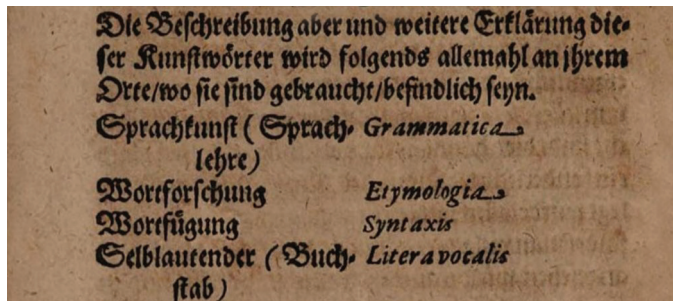 Die Beschreibung aber und weitere Erklärung die⸗
ser Kunstwörter wird folgends allemahl an jhrem
Orte/wo sie sind gebraucht/befindlich seyn.
Sprachkunst (Sprach⸗ Grammatica
lehre)
Wortforschung Etymologia
Wortfügung Syntaxis
Selblautender (Buch⸗ Litera vocalis
stab)